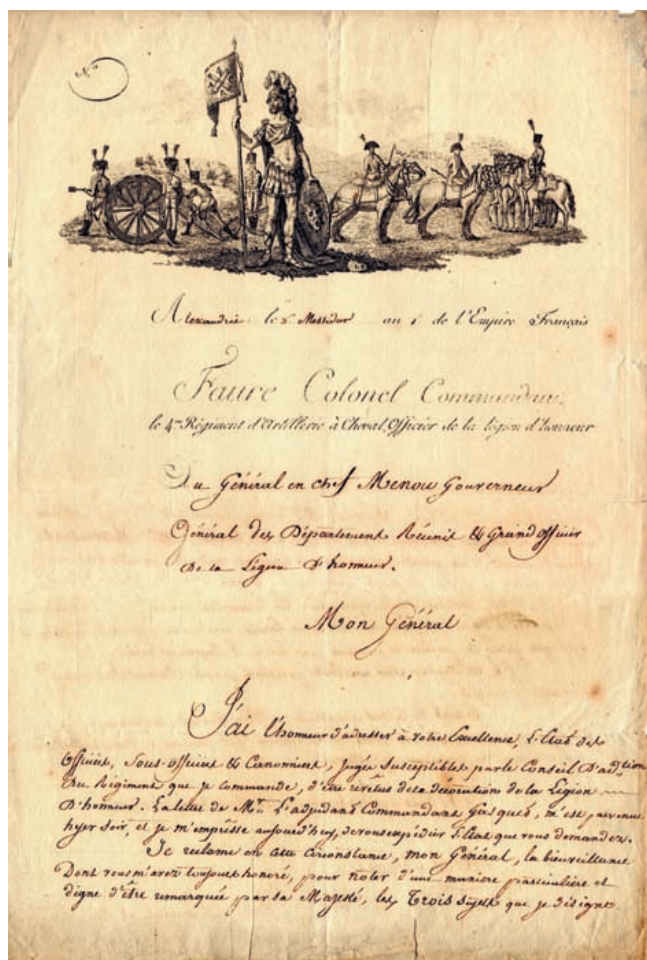 Alexandrie le 8. Messidor an 1r de l'Empire Français
Faure Colonel Commandant
le 4me Régiment d'Artillerie à Cheval, Officier de la légion d'honneur
Au Général en chef Menou Gouverneur
Général des Département Réunit & Grand Officier
De la Légion D'honneur.
Mon Général
J'ai l'honneur d'adresser à votre Excellence, l'Etat des
Officiers, Sous-officiers & Canonniers, jugés susceptibles par le Conseil D'adtion
Du Régiment que je commande, d'être revêtus de la décoration de la Légion
D'honneur. La lettre de Mr. L'adjudant Commandant m'est parvenue
hyer soir, et je m'empresse aujourd'huy, de vous expédier l'Etat que vous demandez.
Je réclame en cette circonstance, mon Général, la bienveillance
Dont vous m'avez toujours honoré, pour noter d'une manière particulière et
digne d'être remarquée par sa Majesté, les Trois sujets que je désigne